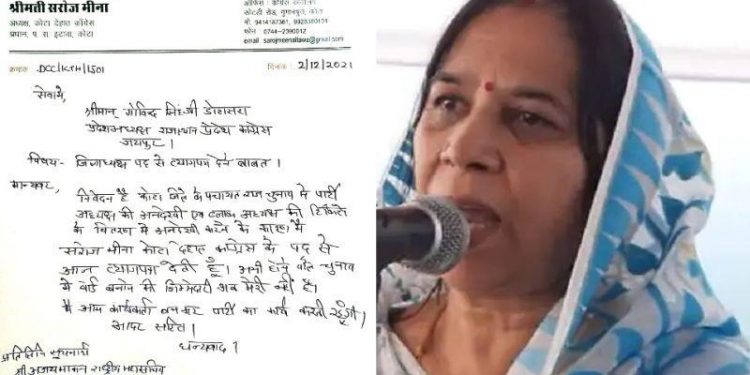 श्रीमती सरोज मीना
अध्यक्ष, कोटा देहात काँग्रेस
प्रधान, प. स. इटावा, कोटा
ऑफिस : काँग्रेस कार्यालय
कोटडी रोड, गुमानपुरा, कोटा
मो. 9414187361, 9928380101
फोन : 0744-2390012
email : sarojmeenaitawa@gmail.com
क्रमांक DCC/KTH/1501
दिनांक : 2/12/2021
सेवामें,
श्रीमान् गोविन्द सिंह जी डोटासरा
प्रदेशअध्यक्ष राजस्थान प्रदेश कांग्रेस
जयपुर।
विषय- जिलाध्यक्ष पद से त्यागपत्र देने बाबत।
मान्यवर,
निवेदन है कोटा जिले के पंचायत राज चुनाव में पार्टी
अध्यक्ष की अनदेखी एवं ब्लाक अध्यक्ष की टिकिटो
के वितरण में अनदेखी करने के कारण मैं
सरोज मीना कोटा देहात कांग्रेस के पद से
आज त्यागपत्र देती हूँ। अभी होने वाले चुनाव
में बोर्ड बनाने की जिम्मेदारी अब मेरी नहीं है।
मैं आम कार्यकर्ता बनकर पार्टी का कार्य करती रहूँगी।
आदर सहित।
धन्यवाद।
प्रतिलिपि सूचनार्थ
श्री अजय माकन राष्ट्रीय महासचिव